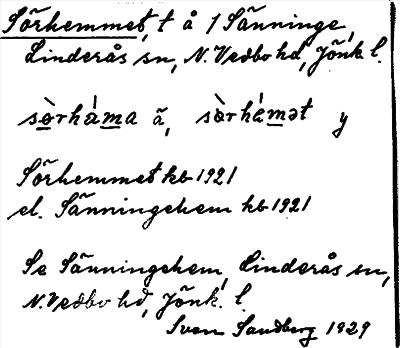 Sörhemmet, t å 1 Sänninge,
Linderås sn, N. Vedbo hd, Jönk. l.
sòrháma ä, sòrhémət y
Sörhemmet kb 1921
el. Sänningehem kb 1921
Se Sänningehem, Linderås sn,
N. Vedbo hd, Jönk. l.
Sven Sandberg 1929